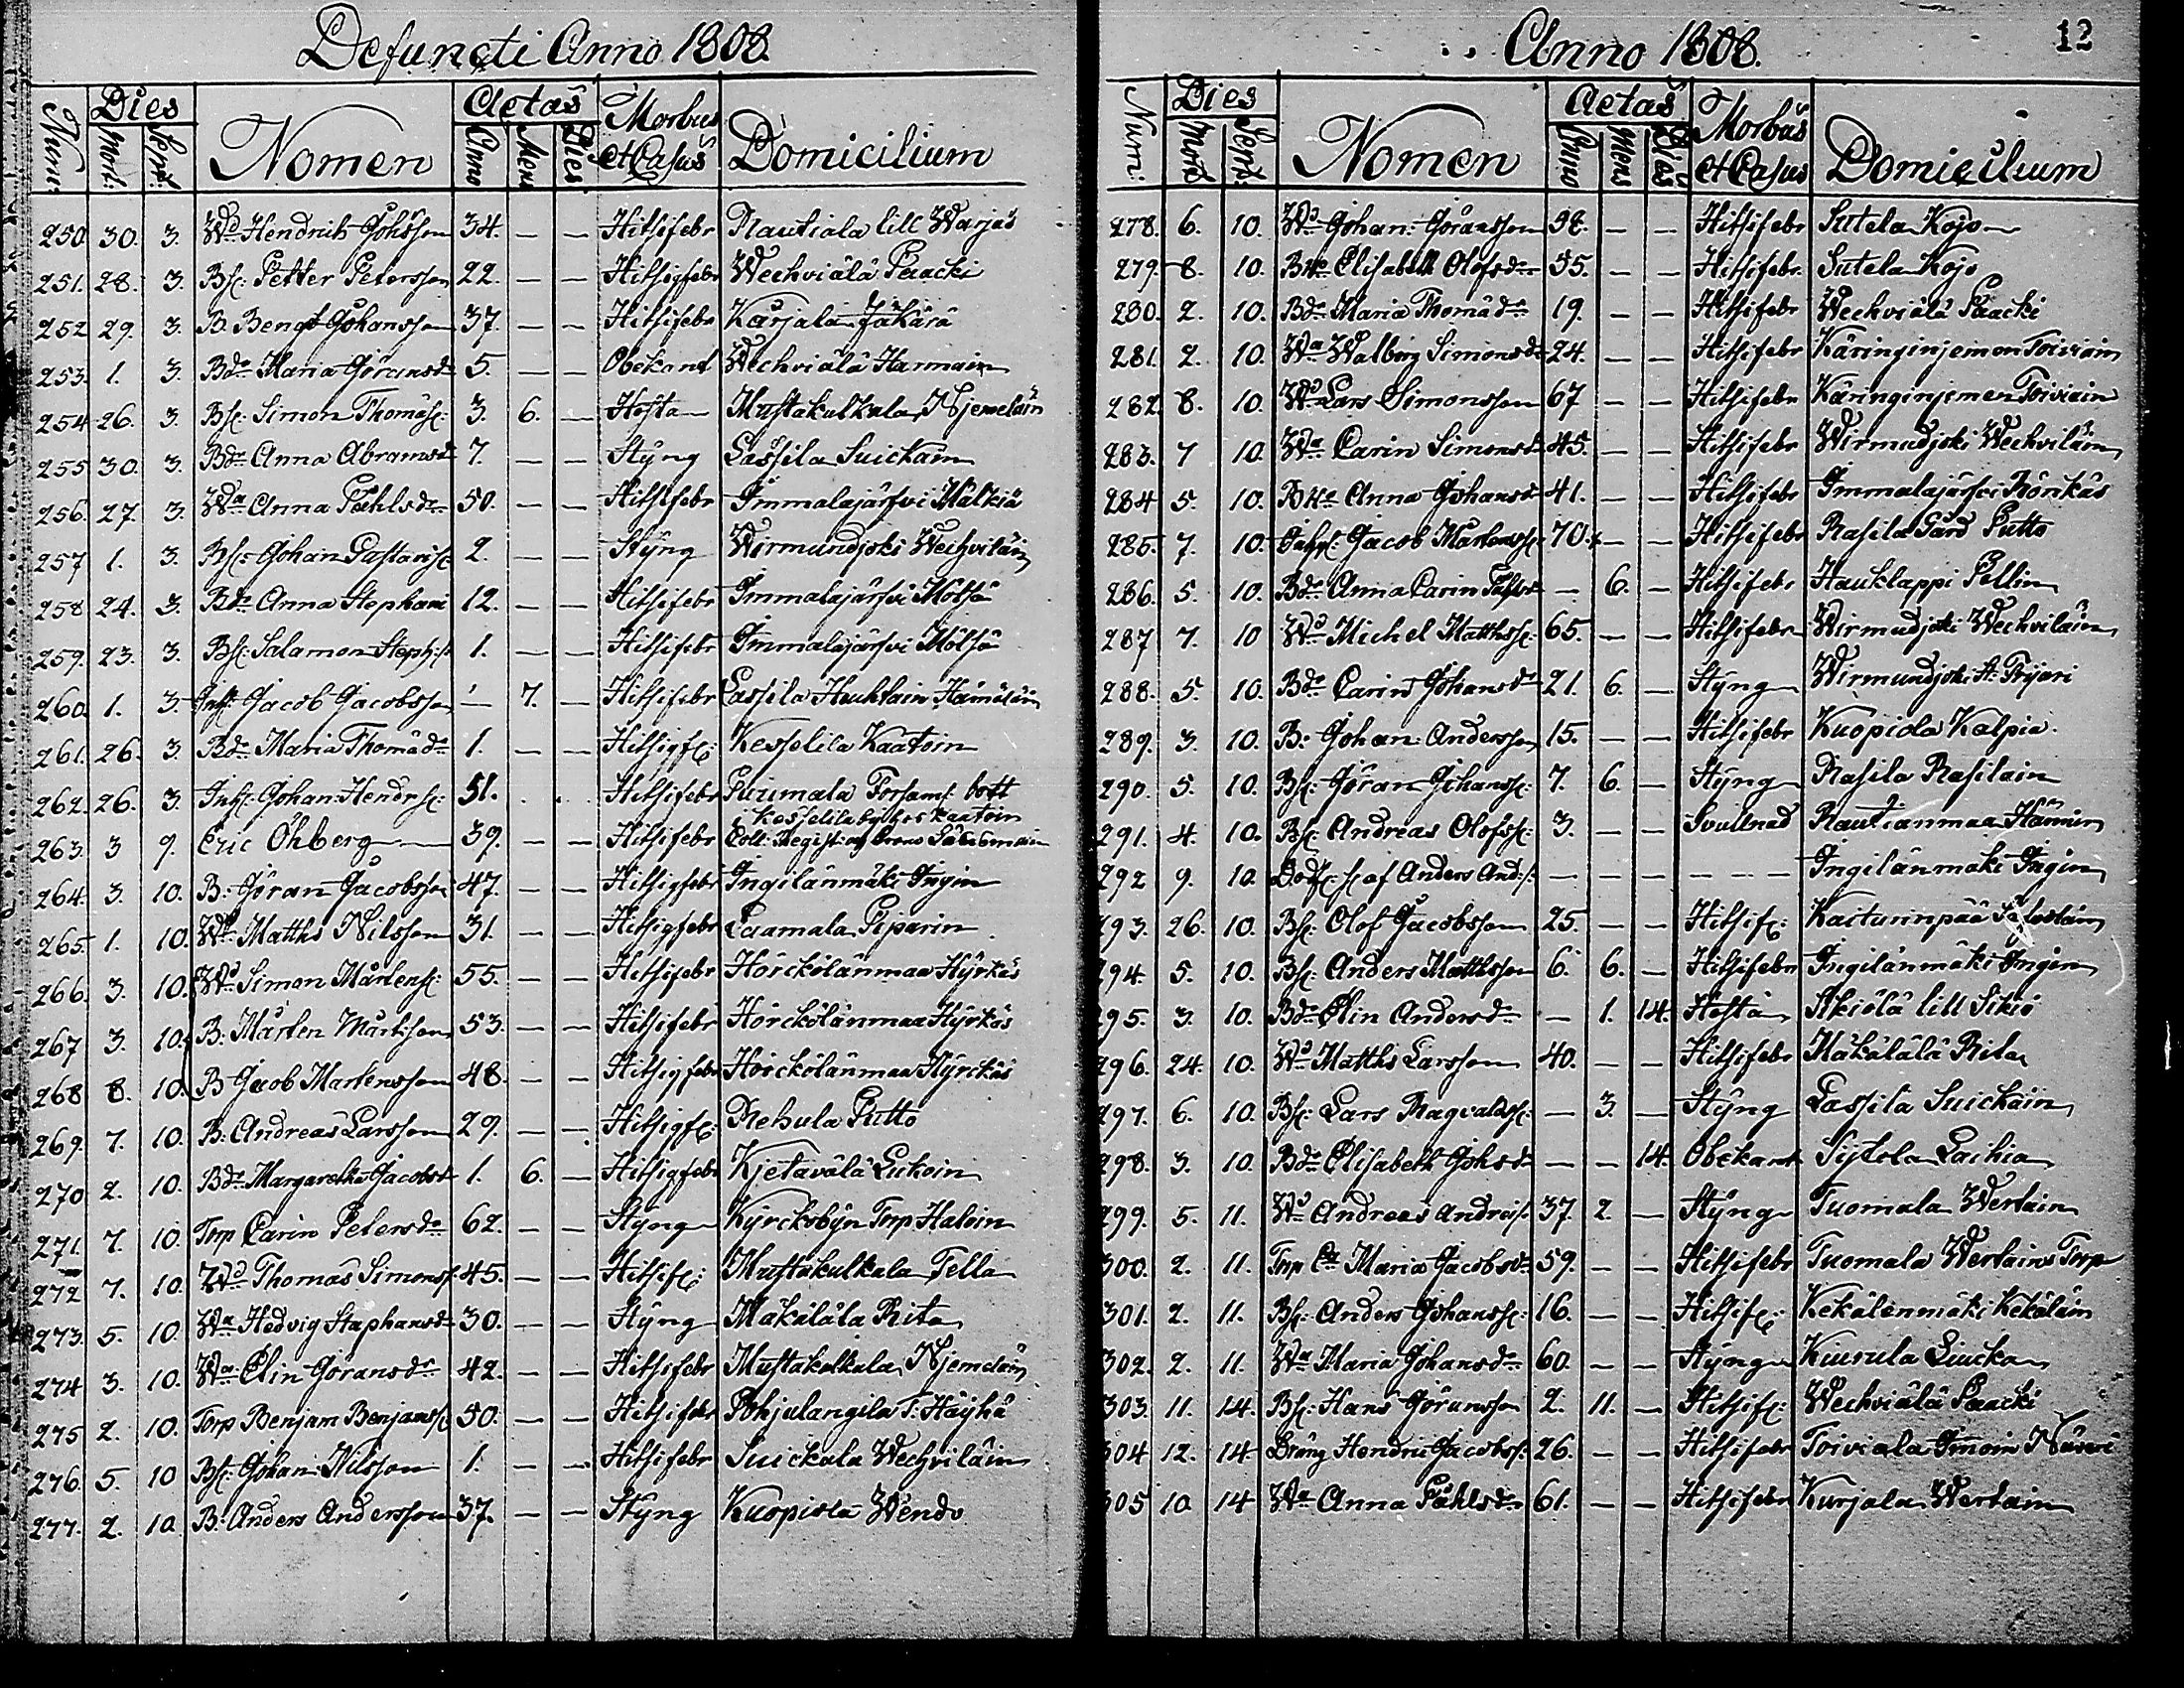 Defuncti Anno 1808.
Num: Dies Mort: Sept: Nomen Aetas Anno Mens Dies Morbus et Casus Domicilium
250. 30. 3. Wd Hendrik Johsson 34. — — Hitsifebr Rautiala lill Warjus
251. 28. 3. Bs: Petter Petersson 22. — — Hitsigfebr Wechviälä Paacki
252 29. 3. B. Bengt Johansson 37. — — Hitsifebr Karjala Jakärä
253. 1. 3. Bdr Maria Göransdr 5. — — Obekant Wechviälä Harmain
254 26. 3. Bs: Simon Thomäs: 3. 6. — Hosta Mustakulkula Njemeläin
255 30. 3. Bdr Anna Abramsdr 7. — — Styng Lassila Suickain
256. 27. 3. Wa Anna Påhlsdr 50. — — Hitsifebr Immalajärfvi Mälkiä
257 1. 3. Bs: Johan Gustavis: 2. — — Styng Wirmundjoki Wechviläin
258 24. 3. Bdr Anna Stephani 12. — — Hitsifebr Immalajärfvi Mölsä
259. 23. 3. Bs: Salamon Steph:s 1. — — Hitsifebr Immalajärfvi Mölsä
260. 1. 3. Inhs: Jacob Jacobsson — 7. — Hitsifebr Lassila Heuklain Hämäläin
261. 26. 3. Bdr Maria Thomädr 1. — — Hitsigf: Kesselila Kaatoin
262. 26. 3. Inhs: Johan Hendrs: 51. . . Hitsifebr Puumala Forsaml: bott
i Kesselila by hos Kaatoin
263. 3 9. Eric Öhberg 39. — — Hitsifebr Coll: Regist: af
264. 3. 10. B: Göran Jacobsson 47. — — Hitsigfebr Ingilänmäki Ingin
265. 1. 10. Wd Matths Nilsson 31. — — Hitsigfebr Laamala Piparin
266. 3. 10. Wd Simon Mårtens: 55. — — Hitsifebr Hörckölänmaa Hyrkäs
267 3. 10. B: Mårten Mårtsson 53. — — Hitsifebr Hörckölänmaa Hyrkäs
268 8. 10. B Jacob Martensson 48. — — Hitsigfebr Hörckölänmaa Hyrckäs
269. 7. 10. B: Andreas Larsson 29. — — Hitsigf: Rehula Putto
270 2. 10. Bdr Margaretha Jacobsdr 1. 6. — Hitsigfebr Kjetavälä Lukoin
271. 7. 10. Torp Carin Petersdr 62. — — Styng Kyrckobyn Torp Haloin
272 7. 10. Wd Thomas Simonss: 45. — — Hitsif: Mustakulkala Tella
273. 5. 10. Wa Hedvig Staphansdr 30. — — Styng Mäkälälä Rita
274 3. 10. Wa Elin Göransdr 42. — — Hitsifebr Mustakulkala Njemeläin
275 2. 10. Torp Benjam Benjams: 50. — — Hitsifebr Pohjalangila T: Häyhä
276. 5. 10 Bs: Johan Nilsson 1. — — Hitsifebr Suickala Wechviläin
277. 2. 10 B: Anders Andersson 37. — — Styng Kuopiola Wendo
Anno 1808.
12
Num: Dies Mort: Sept: Nomen Aetas Anno Mens Dies Morbus et Casus Domicilium
278. 6. 10. Wd Johan Göransson 58. — — Hitsifebr Sutela Kojo
279. 8. 10. Bhu Elisabeth Olofsdr 55. — — Hitsifebr. Sutela Kojo
280. 2. 10. Bdr Maria Thomädr 19. — — Hitsifebr Wechviälä Paacki
281. 2. 10. Wa Walborg Simonsdr 24. — — Hitsifebr Käringinjemen Toiviain
282. 8. 10. Wd Lars Simonsson 67 — — Hitsifebr Käringinjemen Toiviain
283. 7 10. Wa Carin Simonsdr 45. — — Hitsifebr Wirmudjoki Wechviläin
284 5. 10. Bhu Anna Johansdr 41. — — Hitsifebr Immalajärfvi Rönkäs
285. 7. 10. Jacob Mårtenss: 70. — — Hitsifebr Rasila Gård Putto
286. 5. 10. Bdr Anna Carin Påhlsdr — 6. — Hitsifebr Hauklappi Pellin
287 7. 10 Wd Michel Matthss: 65. — — Hitsifebr Wirmudjoki Wechviläin
288. 5. 10. Bdr Carin Johansdr 21. 6. — Styng Wirmundjoki A: Prijari
289. 3. 10. B: Johan Andersson 15. — — Hitsifebr Kuopiola Kalpia.
290. 5. 10. Bs: Göran Johanss: 7. 6. — Styng Rasila Rasilain
291. 4. 10. Bs: Andreas Olofss: 3. — — Svullnad Rautianmaa Hännin
292 9. 10. Dödf: s: af Anders And:s: — — — — — — Ingilänmäki Ingin
293. 26. 10. Bs: Olof Jacobsson 25. — — Hitsif: Kaiturinpää
294. 5. 10. Bs: Anders Matthsson 6. 6. — Hitsifebr Ingilänmäki Ingin
295. 3. 10. Bdr Elin Andersdr — 1. 14. Hosta Sikiölä lill Sikiö
296. 24. 10. Wd Matths Larsson 40. — — Hitsifebr Mäkälälä Rita
297. 6. 10. Bs: Lars Ragvaldss: — 3. — Styng Lassila Suickain
298. 3. 10. Bdr Elisabeth Johsdr — — 14. Obekant Sytola Laihia
299. 5. 11. Wd Andreas Andreis: 37. 2. — Styng Tuomala Wertain
300. 2. 11. Torp Ea Maria Jacobsdr 59. — — Hitsifebr Tuomala Wertains Torp
301. 2. 11. Bs: Anders Johanss: 16. — — Hitsif: Kekälänmäki Kekäläin
302. 2. 11. Wa Maria Johansdr 60. — — Styng Kiurula Liucka
303. 11. 14. Bs: Hans Göransson 2. 11. — Hitsif: Wechviälä Paacki
304 12. 14. Dräng Hendric Jacobss: 26. — — Hitsifebr Toiviala Imoin
305 10 14 Wa Anna Påhlsdr 61. — — Hitsifebr Kurjala Wertain